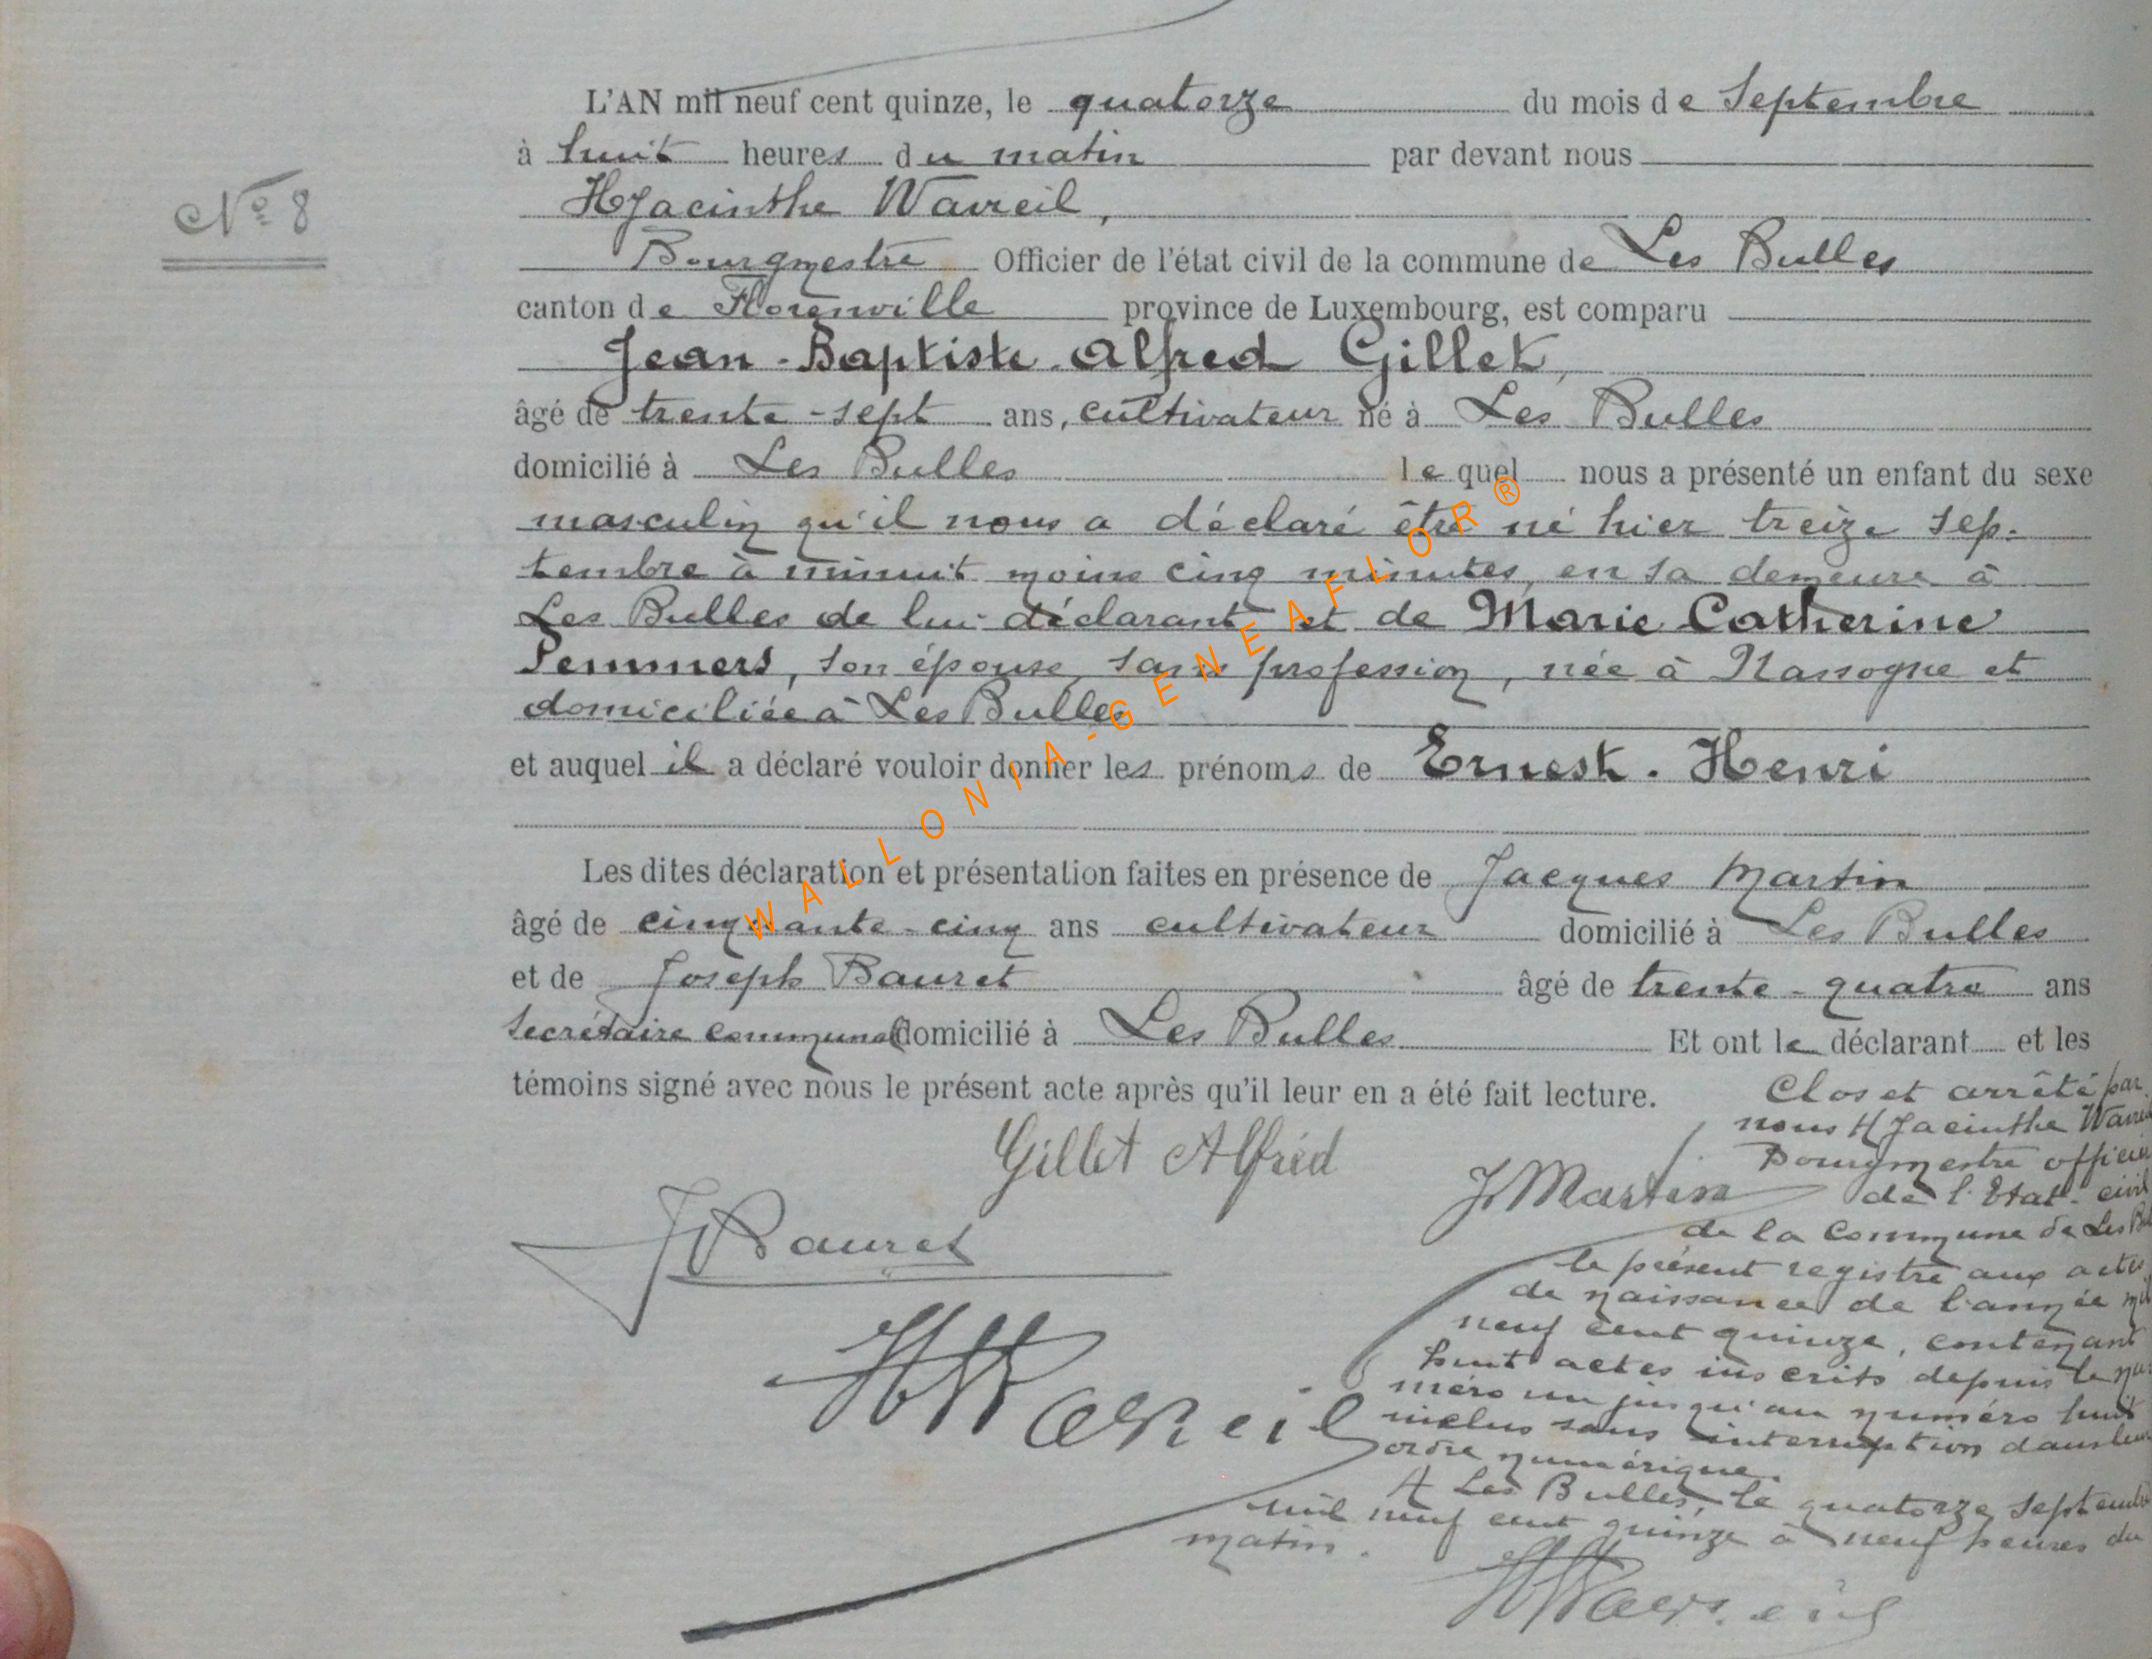 N° 8
L'AN mil neuf cent quinze, le quatorze du mois de Septembre
à huit heures du matin par devant nous
HJacinthe Wavreil,
Bourgmestre Officier de l'état civil de la commune de Les Bulles
canton de Florenville province de Luxembourg, est comparu
Jean-Baptiste-Alfred Gillet,
âgé de trente-sept ans, cultivateur né à Les Bulles
domicilié à Les Bulles lequel nous a présenté un enfant du sexe
masculin qu'il nous a déclaré être né hier treize sep-
tembre à minuit moins cinq minutes, en sa demeure à
Les Bulles de lui déclarant et de Marie Catherine
Pemmers, son épouse, sans profession, née à Nassogne et
domiciliée à Les Bulles
et auquel il a déclaré vouloir donner les prénoms de Ernest-Henri
WALLONIA-GENEAFLOR®
Les dites déclaration et présentation faites en présence de Jacques Martin
âgé de cinquante-cinq ans cultivateur domicilié à Les Bulles
et de Joseph Bauret âgé de trente-quatre ans
secrétaire communal domicilié à Les Bulles Et ont le déclarant et les
témoins signé avec nous le présent acte après qu'il leur en a été fait lecture.
Gillet Alfred
J Martin
J Bauret
HWavreil
Clos et arrêté par
nous HJacinthe Wavreil
Bourgmestre officier
de l'Etat-civil
de la Commune de Les Bulles
le présent registre aux actes
de naissance de l'année mil
neuf cent quinze, contenant
huit actes inscrits depuis le nu-
méro un jusqu'au numéro huit
inclus sans interruption dans leur
ordre numérique.
A Les Bulles, le quatorze septembre
mil neuf cent quinze à neuf heures du
matin.
HWavreil